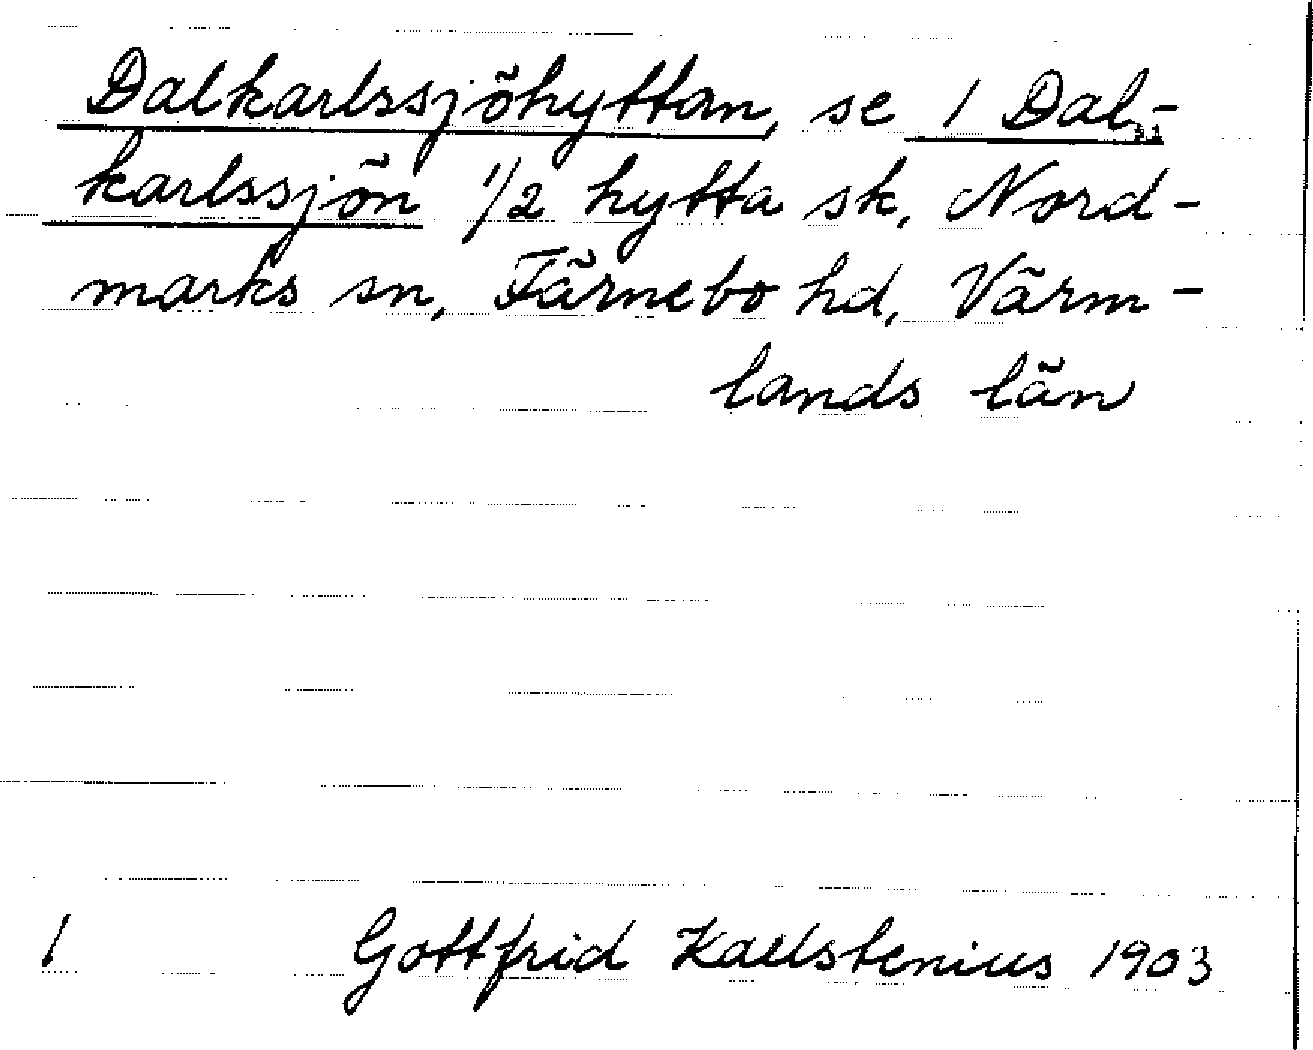 Dalkarlssjöhyttan, se 1 Dal-
karlssjön 1/2 hytta sk, Nord-
marks sn, Färnebo hd, Värm-
lands län
1 Gottfrid Kallstenius 1903